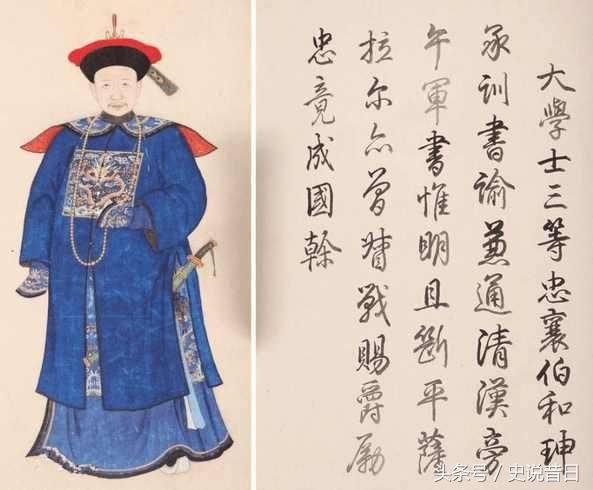 大學士三等忠襄伯和珅
承訓書諭兼通清漢旁
午軍書惟明且斷平薩
拉尔亦曾督戰賜爵勵
忠竟成國幹
头条号 / 史说昔日